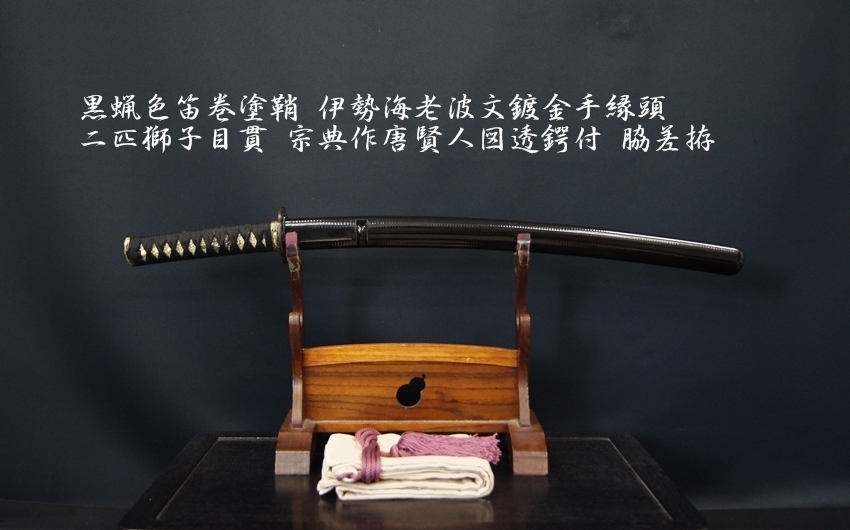 黒蝋色笛巻塗鞘 伊勢海老波文鍍金手縁頭
二匹獅子目貫 宗典作唐賢人図透鍔付 脇差拵